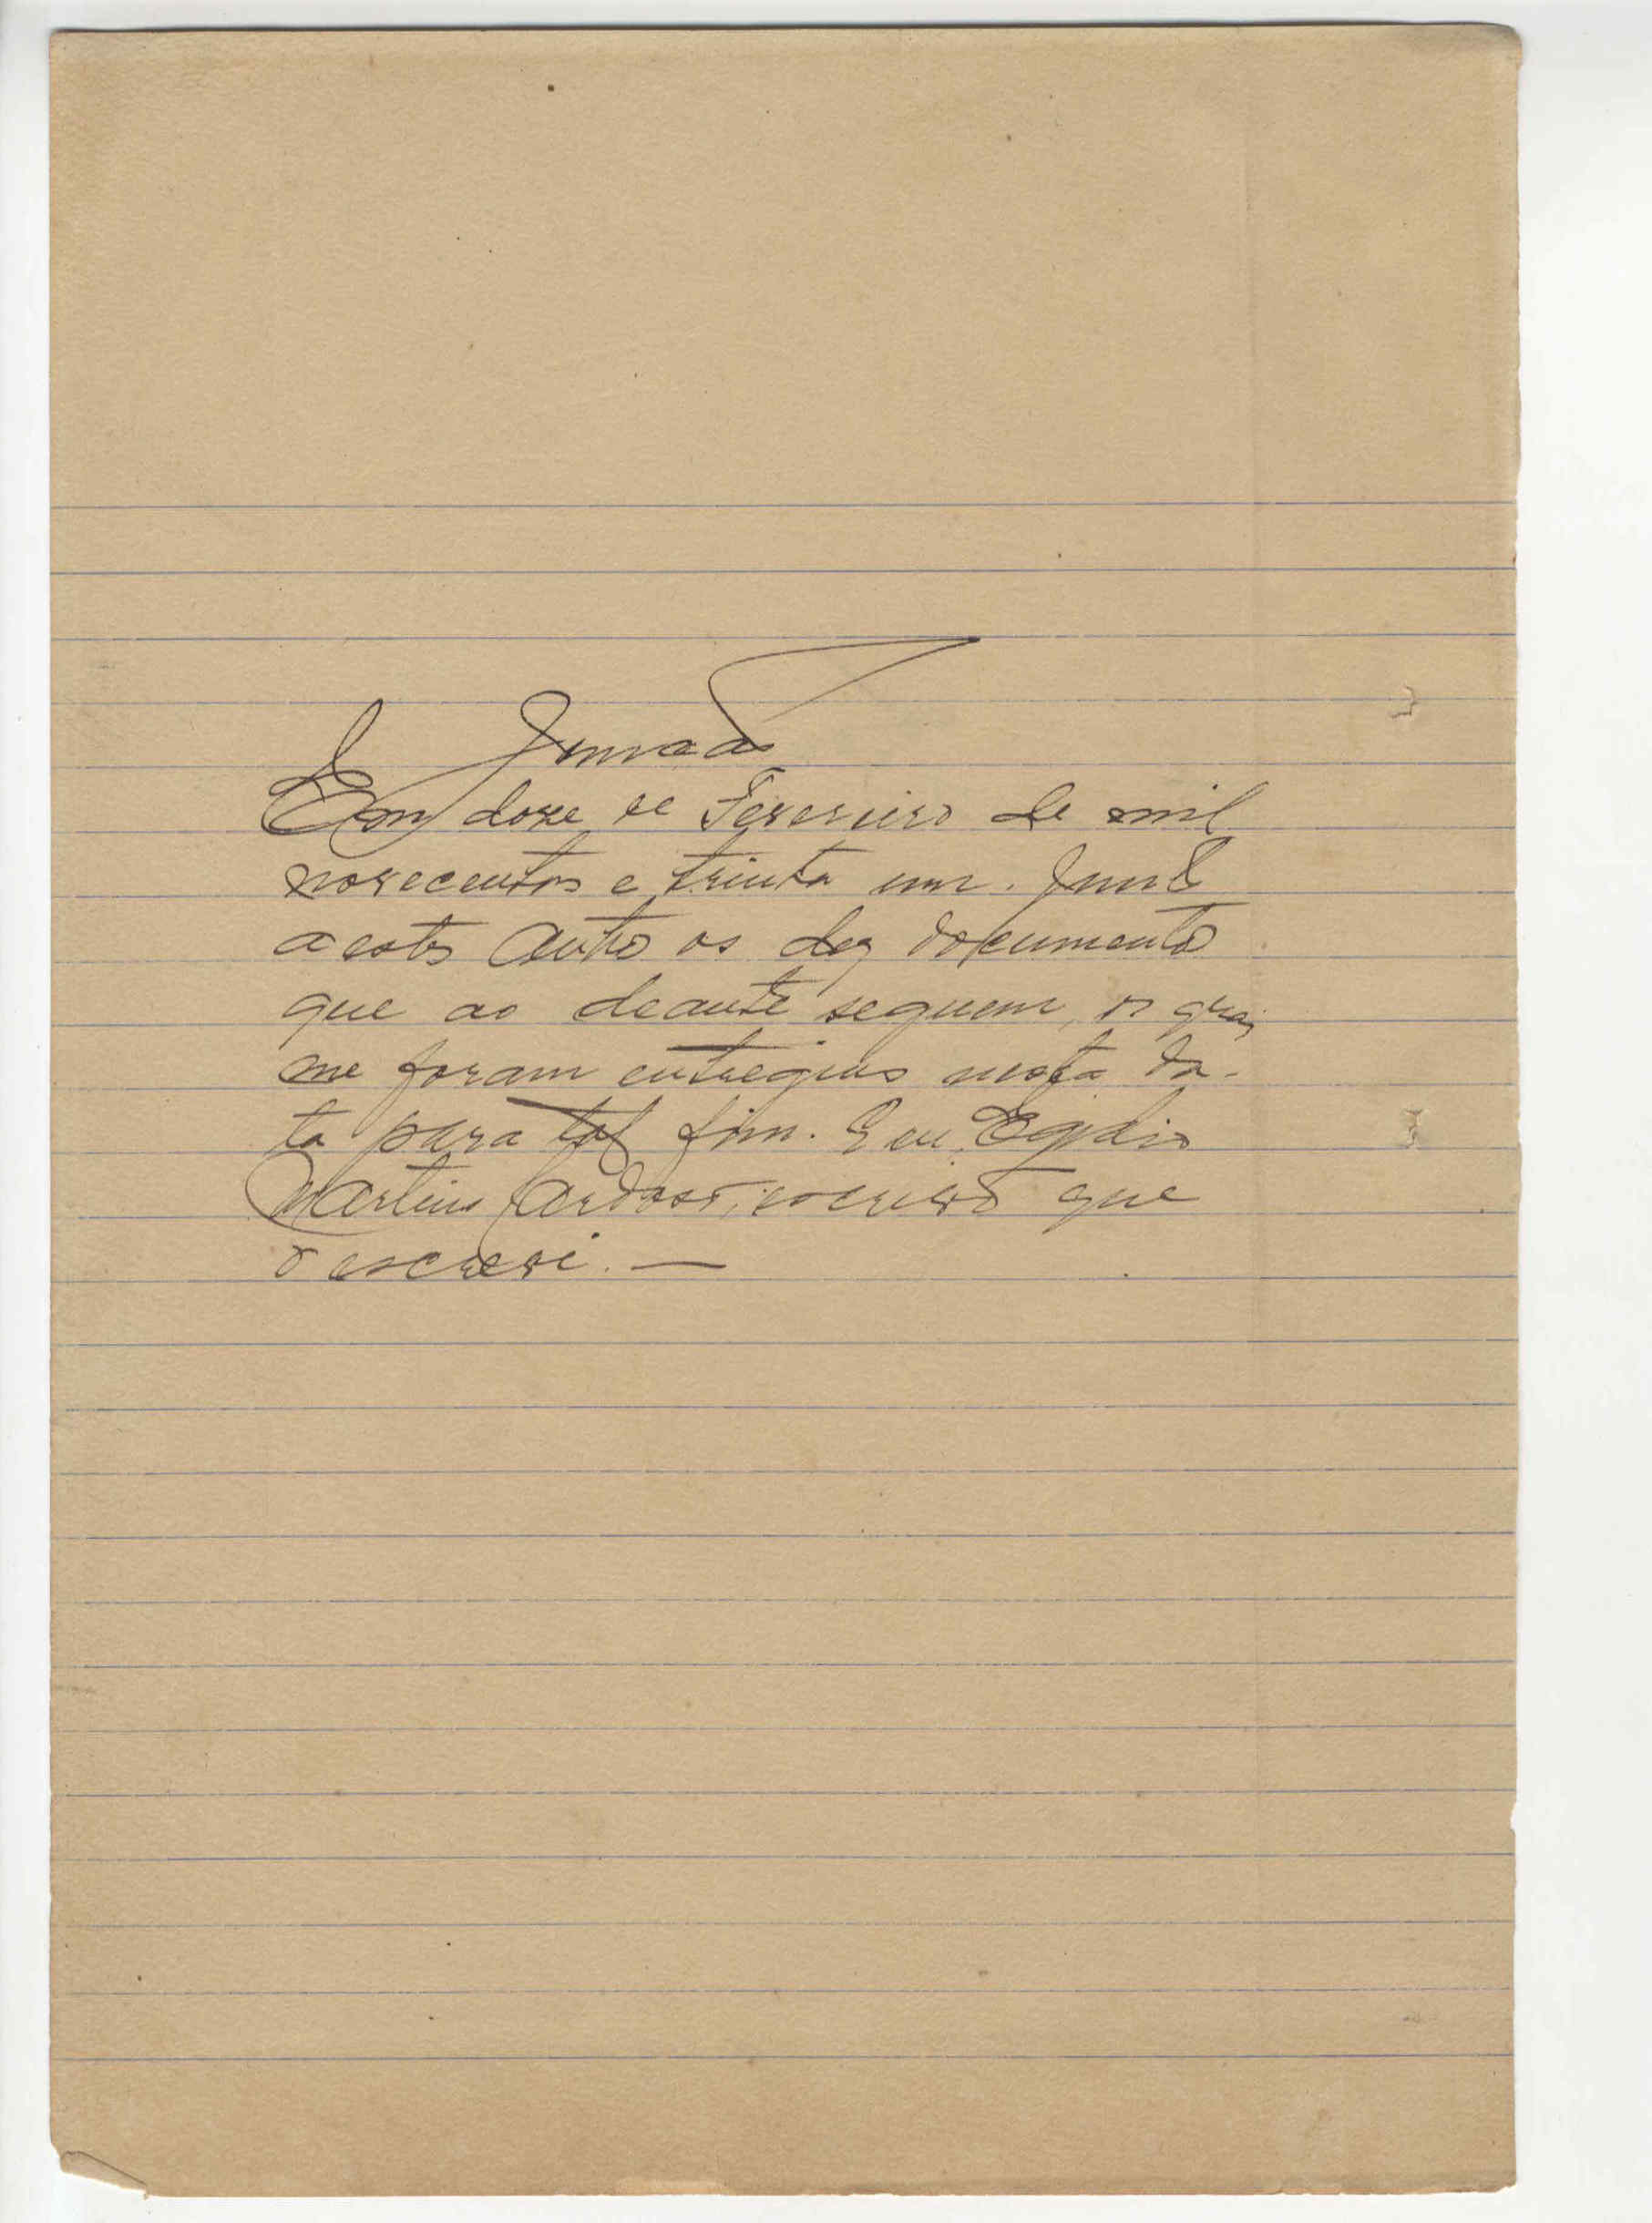 Juntada
Em doze de Fevereiro de mil
novecentos e trinta um. Junto
a estes Autos os dez documentos
que ao deante seguem, os quaes
me foram entregues nesta da-
ta para tal fim. Eu Egidio
Martins Cardoso, escrivão que
o escrevi. —